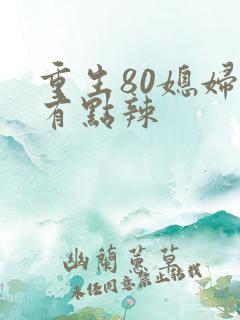 重生80媳婦
有點辣
幽蘭蕙草
未经同意禁止转载